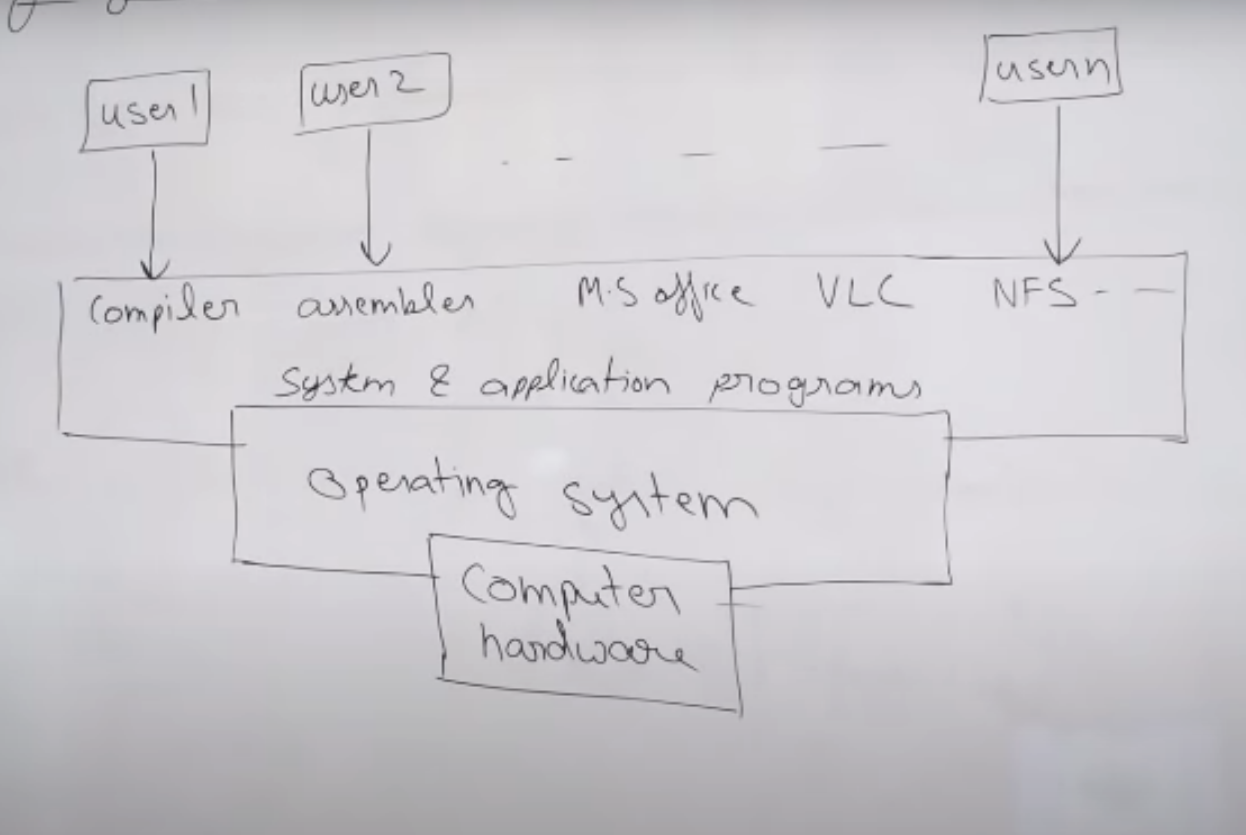 user 1 user 2 user n
. - - -
Compiler assembler M.S office VLC NFS - -
System & application programs
Operating system
Computer
hardware